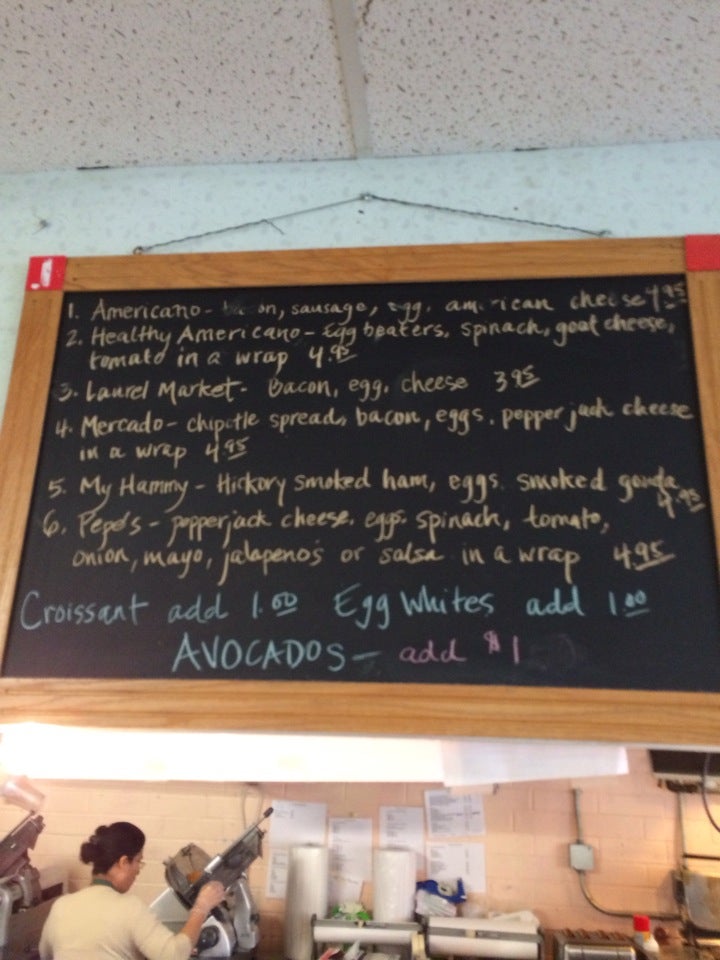 1. Americano - bacon, sausage, egg, american cheese 4.95
2. Healthy Americano - Egg beaters, spinach, goat cheese,
tomato in a wrap 4.95
3. Laurel Market - Bacon, egg, cheese 3.95
4. Mercado - chipotle spread, bacon, eggs, pepper jack cheese
in a wrap 4.95
5. My Hammy - Hickory smoked ham, eggs, smoked gouda 4.95
6. Pepe's - pepperjack cheese, eggs, spinach, tomato,
onion, mayo, jalapeno's or salsa in a wrap 4.95
Croissant add 1.00 Egg Whites add 1.00
AVOCADOS - add $1